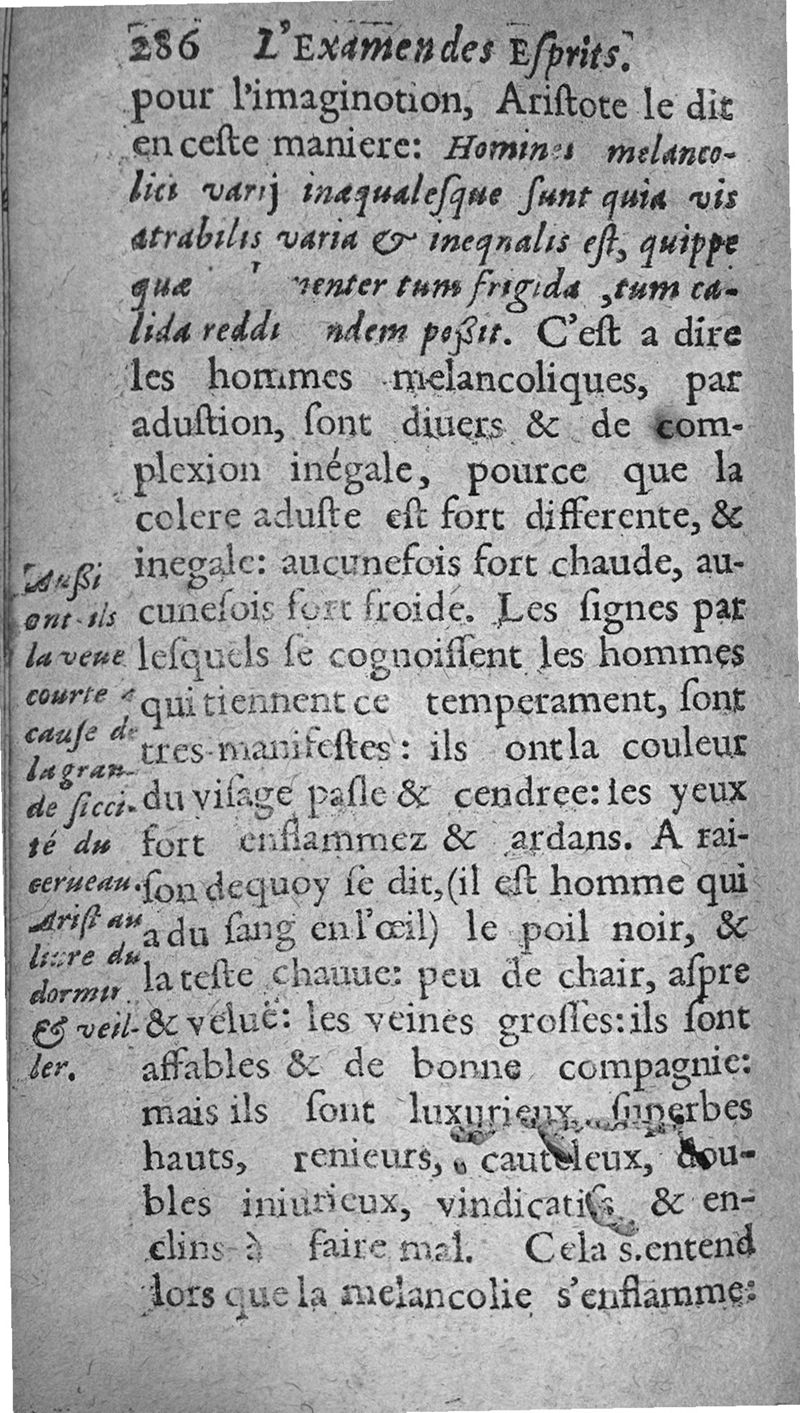 286 L'Examen des Eſprits.
pour l'imaginotion, Ariſtote le dit
en ceſte maniere: Homines melanco-
lici varij inæqualeſque ſunt quia vis
atrabilis varia & ineqnalis eſt, quippe
quæ tum frigida, tum ca-
lida reddi poßit. C'eſt a dire
les hommes melancoliques, par
aduſtion, ſont diuers & de com-
plexion inégale, pource que la
colere aduſte eſt fort differente, &
inegale: aucunefois fort chaude, au-
cunefois fort froide. Les ſignes par
leſquels ſe cognoiſſent les hommes
qui tiennent ce temperament, ſont
tres-manifeſtes: ils ont la couleur
du viſage paſle & cendree: les yeux
fort enflammez & ardans. A rai-
ſon dequoy ſe dit, (il eſt homme qui
a du ſang en l'œil) le poil noir, &
la teſte chauue: peu de chair, aſpre
& veluë: les veines groſſes: ils ſont
affables & de bonne compagnie:
mais ils ſont luxurieux, ſuperbes
hauts, renieurs, cauteleux, dou-
bles iniurieux, vindicatifs & en-
clins à faire mal. Cela s.entend
lors que la melancolie s'enflamme:
Außi
ont-ils
la veue
courte a
cauſe de
la gran-
de ſicci-
té du
cerueau.
Ariſt au
liure du
dormir
& veil-
ler.